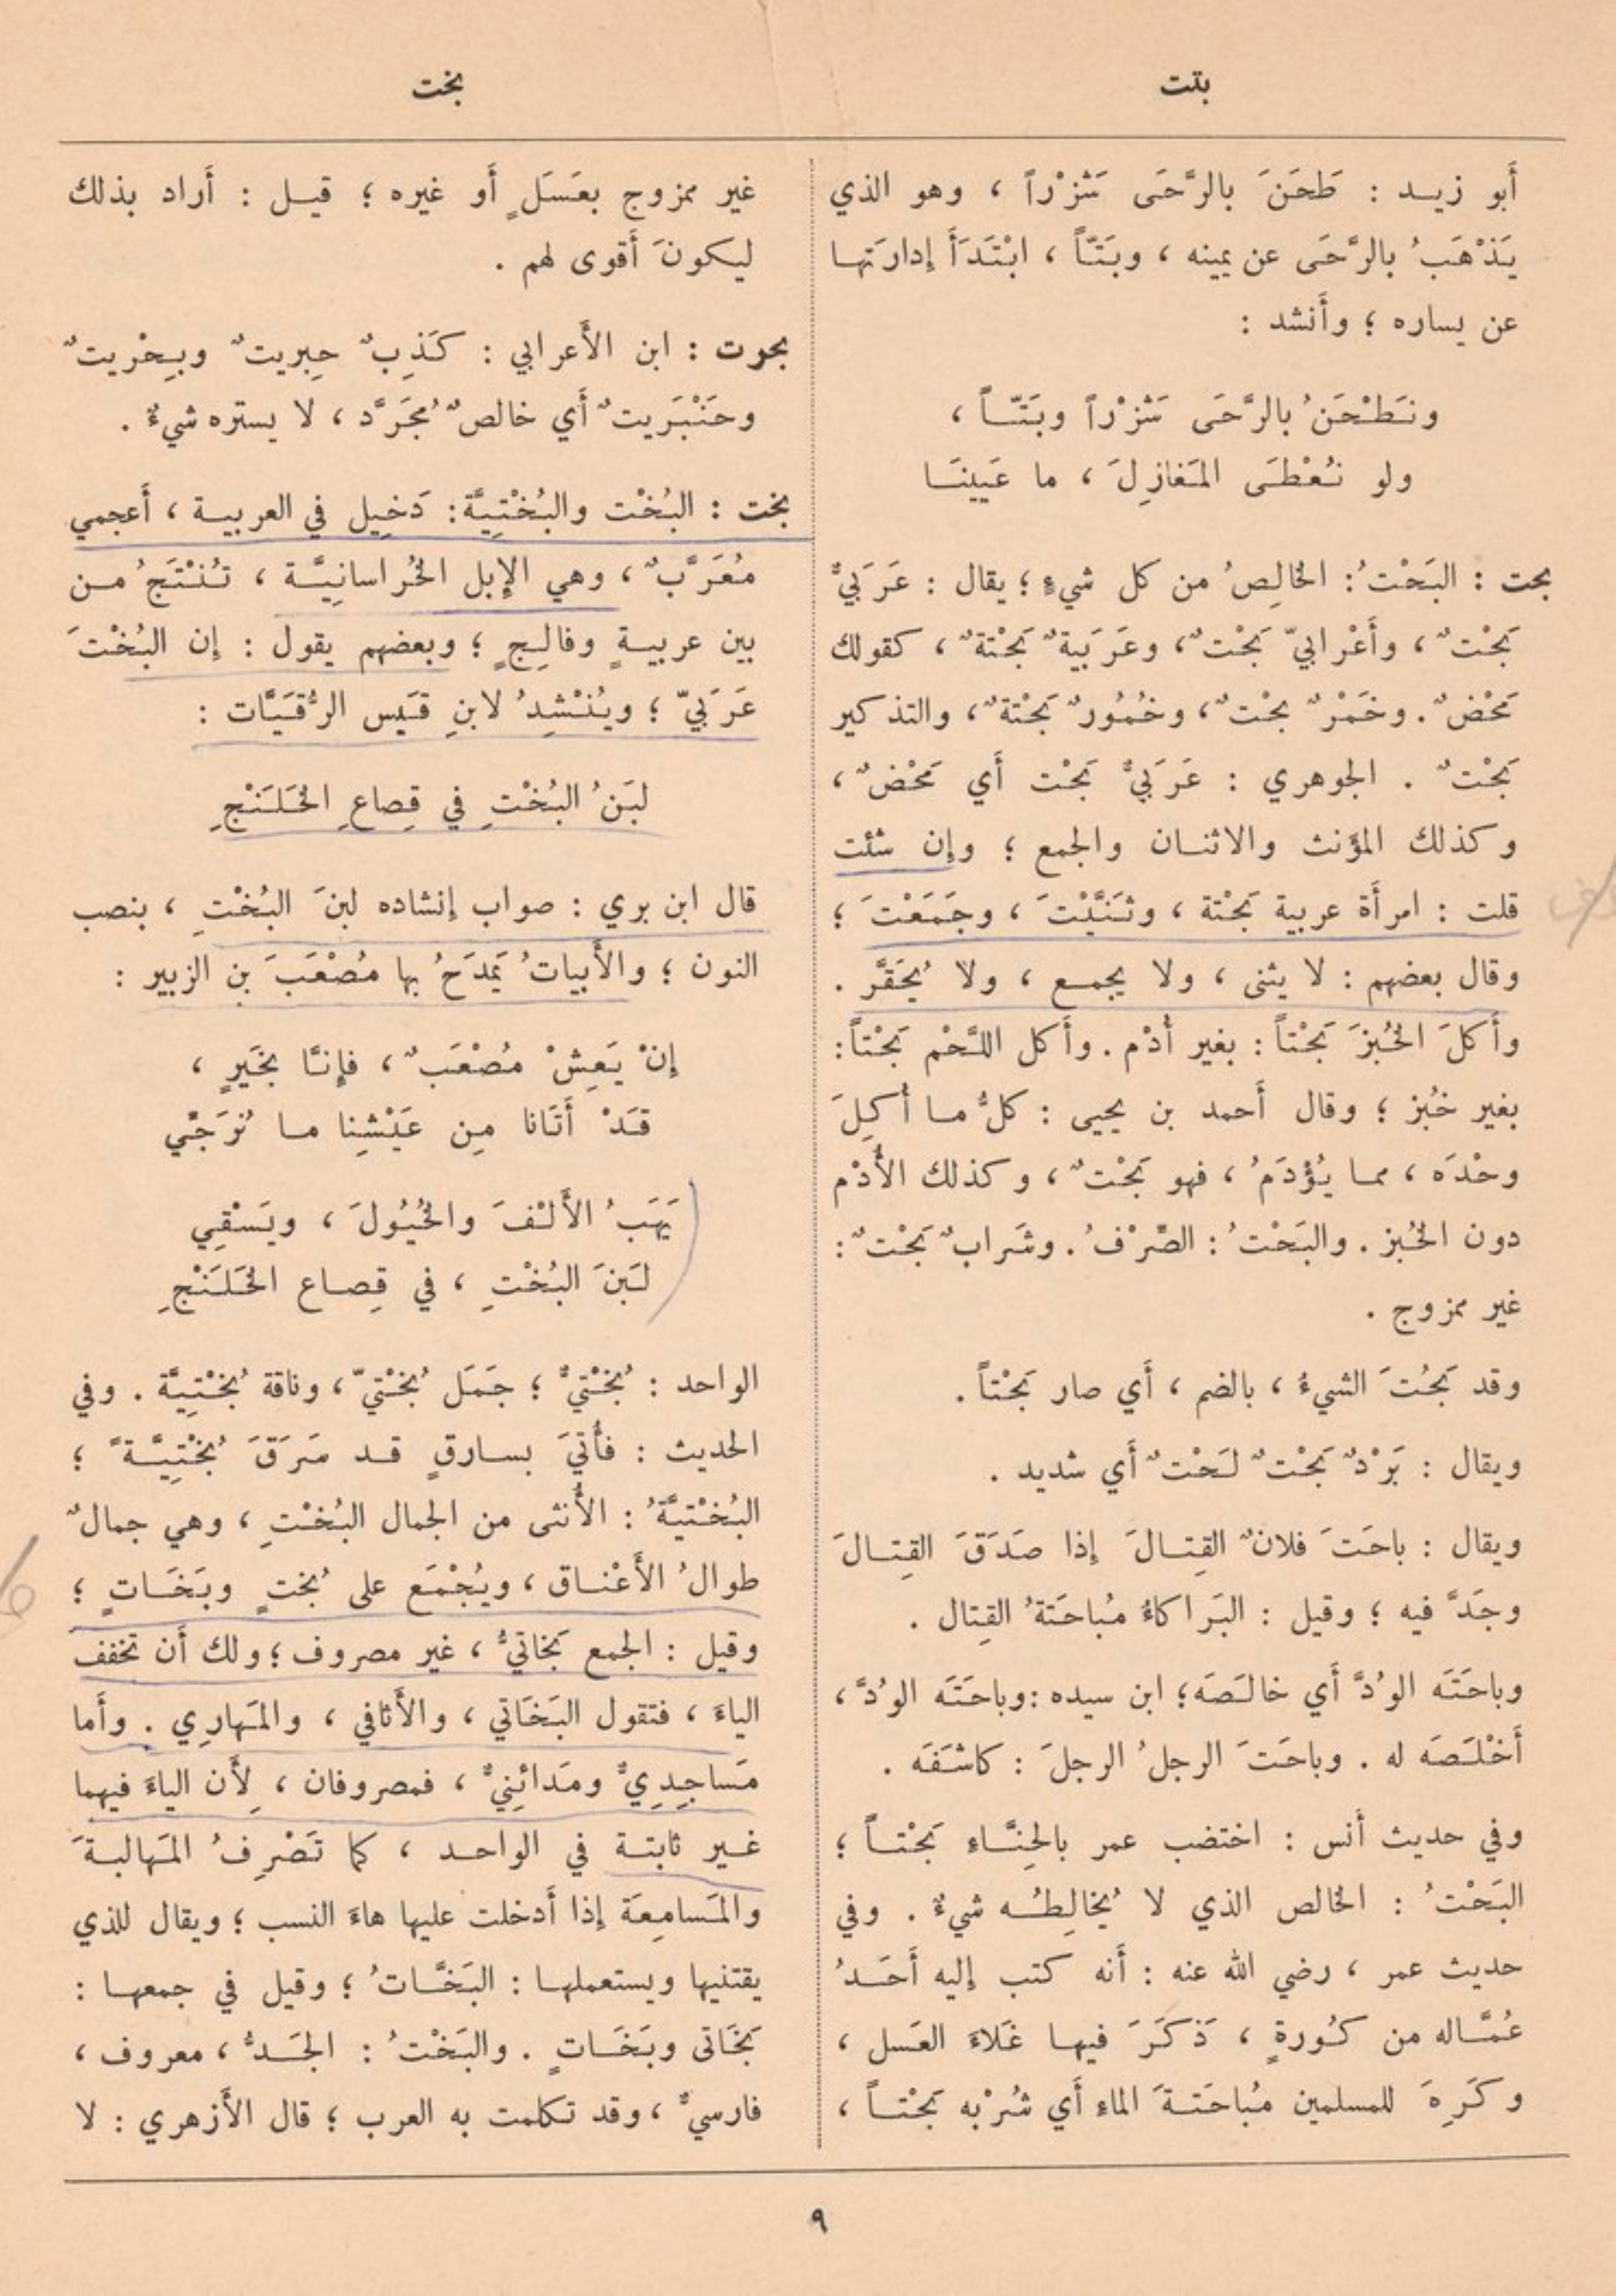 بتت
بخت
أَبو زيـد : طَحَنَ بالرَّحَى شَزْراً ، وهو الذي
يَذْهَبُ بالرَّحَى عن يمينه ، وبَتّاً ، ابْتَدَأَ إدارَتَها
عن يساره ؛ وأَنشد :
ونَطْحَنُ بالرَّحَى شَزْراً وبَتّاً ،
ولو نُعْطَى المَغازِلَ ، ما عَيِينَا
بحت : البَحْتُ : الخالِصُ من كل شيءٍ ؛ يقال : عَرَبيٌّ
بَحْتٌ ، وأَعْرابيّ بَحْتٌ ، وعَرَبيةٌ بَحْتةٌ ، كقولك
مَحْضٌ . وخَمْرٌ بحْتٌ ، وخُمُورٌ بَحْتةٌ ، والتذكير
بَحْتٌ . الجوهري : عَرَبيٌّ بَحْت أَي مَحْضٌ ،
وكذلك المؤنث والاثنـان والجمع ؛ وإن شئت
قلت : امرأَة عربية بَحْتة ، وثَنَّيْتَ ، وجَمَعْتَ ؛
وقال بعضهم : لا يثنى ، ولا يجمـع ، ولا يُحَقَّر .
وأَكلَ الخُبزَ بَحْتاً : بغير أُدْم . وأَكل اللَّحْم بَحْتاً :
بغير خُبز ؛ وقال أَحمد بن يحيى : كلُّ مـا أُكِلَ
وحْدَه ، ممـا يُؤْدَمُ ، فهو بَحْتٌ ، وكذلك الأُدْم
دون الخُبز . والبَحْتُ : الصِّرْفُ . وشَرابٌ بَحْتٌ :
غير ممزوج .
وقد بَحُتَ الشيءُ ، بالضم ، أَي صار بَحْتاً .
ويقال : بَرْدٌ بَحْتٌ لَحْتٌ أَي شديد .
ويقال : باحَتَ فلانٌ القِتـالَ إذا صَدَقَ القِتـالَ
وجَدَّ فيه ؛ وقيل : البَراكاءُ مُباحَتةُ القِتال .
وباحَتَه الوُدَّ أَي خالَصَه ؛ ابن سيده : وباحَتَه الوُدَّ ،
أَخْلَصَه له . وباحَتَ الرجلُ الرجلَ : كاشَفَه .
وفي حديث أَنس : اختضب عمر بالحِنَّـاءِ بَحْتـاً ؛
البَحْتُ : الخالص الذي لا يُخالِطُـه شيءٌ . وفي
حديث عمر ، رضي الله عنه : أَنه كتب إليه أَحَـدُ
عُمَّـاله من كُورةٍ ، ذَكَرَ فيهـا غَلاءَ العَسل ،
وكَرِهَ للمسلمين مُباحَتـةَ الماءِ أَي شُرْبه بَحْتـاً ،
غير ممزوج بعَسَلٍ أَو غيره ؛ قيـل : أَراد بذلك
ليكونَ أَقوى لهم .
بحرت : ابن الأَعرابي : كَذِبٌ حِبريتٌ وبِحْريتٌ
وحَنْبَريتٌ أَي خالصٌ مُجَرَّد ، لا يستره شيءٌ .
بخت : البُخْت والبُخْتِيَّة : دَخِيل في العربيـة ، أَعجمي
مُعَرَّبٌ ، وهي الإبل الخُراسانِيَّـة ، تُنْتَجُ مـن
بين عربيـةٍ وفالِجٍ ؛ وبعضهم يقول : إن البُخْتَ
عَرَبيّ ؛ ويُنْشِدُ لابنِ قَيس الرُّقَيَّات :
لبَنُ البُخْتِ في قِصاعِ الخَلَنْجِ
قال ابن بري : صواب إنشاده لبنَ البُخْتِ ، بنصب
النون ؛ والأَبياتُ يَمدَحُ بها مُصْعَبَ بن الزبير :
إنْ يَعِشْ مُصْعَبٌ ، فإنَّا بخَيرٍ ،
قَدْ أَتَانا مِن عَيْشِنا مـا نُرَجِّي
يَهَبُ الأَلْفَ والخُيُولَ ، ويَسْقِي
لَبَنَ البُخْتِ ، في قِصاع الخَلَنْجِ
الواحد : بُخْتيٌّ ؛ جَمَل بُخْتيّ ، وناقة بُخْتِيَّة . وفي
الحديث : فأُتيَ بسـارقٍ قـد سَرَقَ بُخْتِيَّـةً ؛
البُخْتيَّةُ : الأُنثى من الجمال البُخْتِ ، وهي جمالٌ
طوالُ الأَعْنـاق ، ويُجْمَع على بُختٍ وبَخَـاتٍ ؛
وقيل : الجمع بَخاتيُّ ، غير مصروف ؛ ولك أَن تخفف
الياءَ ، فتقول البَخَاتي ، والأَثافي ، والمَهارِي . وأَما
مَساجِدِيٌّ ومَدائِنيٌّ ، فمصروفان ، لأَن الياءَ فيهما
غـير ثابتـة في الواحـد ، كما تَصْرِفُ المَهالبـةَ
والمَسامِعَة إذا أَدخلت عليها هاءَ النسب ؛ ويقال للذي
يقتنيها ويستعملهـا : البَخَّـاتُ ؛ وقيل في جمعهـا :
بَخَاتى وبَخَـاتٍ . والبَخْتُ : الجَـدُّ ، معروف ،
فارسيٌّ ، وقد تكلمت به العرب ؛ قال الأَزهري : لا
٩